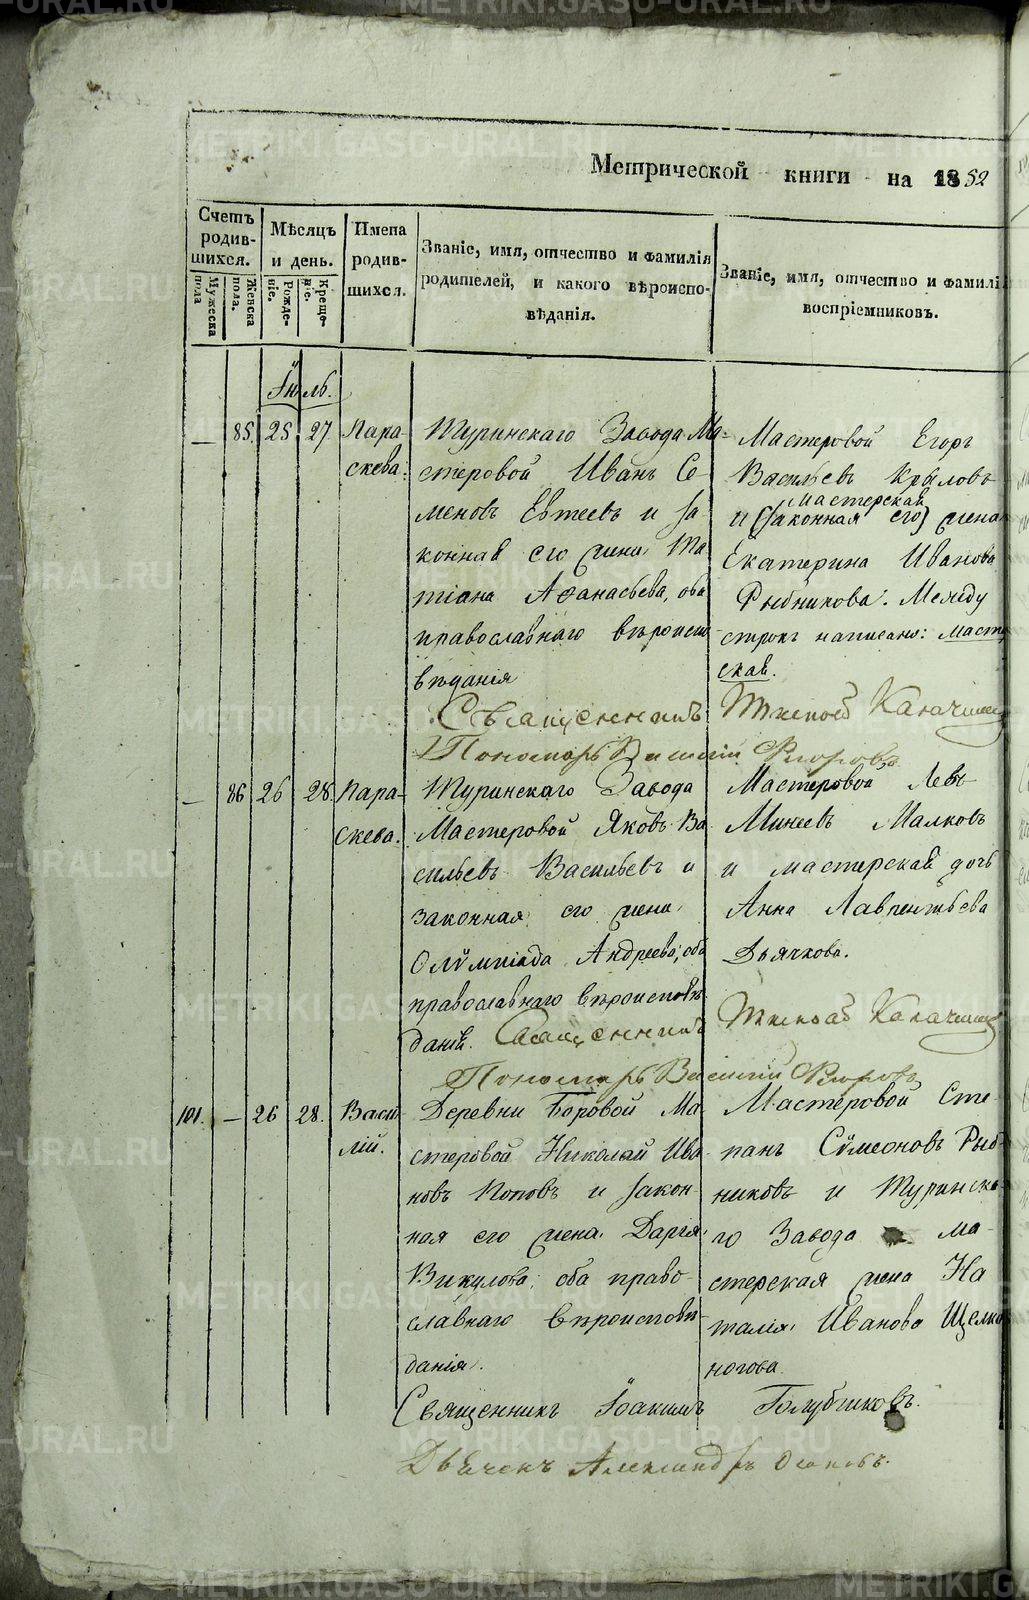 Метрической книги на 1852
Счетъ родив-шихся.
Мужеска пола
Женска пола.
Мѣсяцъ и день.
Рожде-ніе.
Креще-ніе.
Имена родив-шихся.
Званіе, имя, отчество и фамилія
родителей, и какого вѣроиспо-
вѣданія.
Званіе, имя, отчество и фамилі
воспріемниковъ.
Іюль.
— 85. 25 27. Пара-
скева.
Туринскаго Завода Ма-
стеровой Иванъ Се-
меновъ Евтеевъ и за
конная его жена Та
тіана Аѳанасьева, оба
православнаго вѣроиспо-
вѣданія
Мастеровой Егоръ
Васильевъ Крыловъ
мастерская
и (законная его) жена
Екатерина Иванова
Рыбникова. Между
строкъ написано: маст
ская.
Священникъ
Пономарь Василій
— 86 26 28. Пара-
скева.
Туринскаго Завода
Мастеровой Яковъ Ва
сильевъ Васильевъ и
законная его жена
Олѵмпіада Андреева, оба
православнаго вѣроисповѣ-
данія.
Мастеровой Левъ
Минеевъ Малковъ
и мастерская дочь
Анна Лаврентьева
Дьячкова.
Священникъ
Пономарь Василій
101. — 26 28. Васи
лій.
Деревни Боровой Ма
стеровой Николай Ива-
новъ Поповъ и закон-
ная его жена Дарія
Викулова, оба право-
славнаго вѣроисповѣ-
данія.
Мастеровой Сте-
панъ Сѵмеоновъ Рыб-
никовъ и Туринска-
го Завода ма-
стерская жена На
талія Иванова Щелко
ногова
Священникъ Іоакимъ Голубчиковъ.
Дьячекъ Александръ Осиповъ.
METRIKI.GASO-URAL.RU